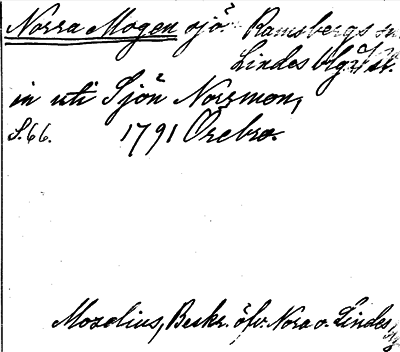 Norra Mogen sjö. Ramsbergs sn
Lindes blg
in uti Sjön Norrmon,
S. 66. 1791 Örebro.
Mozelius, Beskr. öfv. Nora o. Lindes